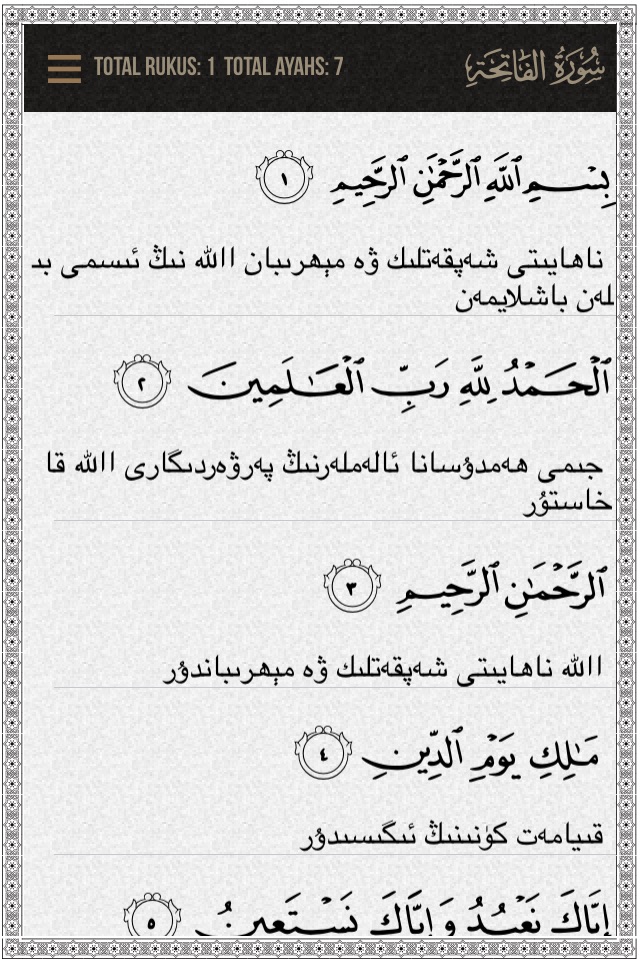 TOTAL RUKUS: 1 TOTAL AYAHS: 7
سُورَةُ الفَاتِحَةِ
بِسْمِ ٱللَّهِ ٱلرَّحْمَٰنِ ٱلرَّحِيمِ ١
ناھايىتى شەپقەتلىك ۋە مېھرىبان االله نىڭ ئىسمى بى
لەن باشلايمەن
ٱلْحَمْدُ لِلَّهِ رَبِّ ٱلْعَـٰلَمِينَ ٢
جىمى ھەمدۇسانا ئالەملەرنىڭ پەرۋەردىگارى االله قا
خاستۇر
ٱلرَّحْمَٰنِ ٱلرَّحِيمِ ٣
االله ناھايىتى شەپقەتلىك ۋە مېھرىباندۇر
مَـٰلِكِ يَوْمِ ٱلدِّينِ ٤
قىيامەت كۈنىنىڭ ئىگىسىدۇر
إِيَّاكَ نَعْبُدُ وَإِيَّاكَ نَسْتَعِينُ ٥